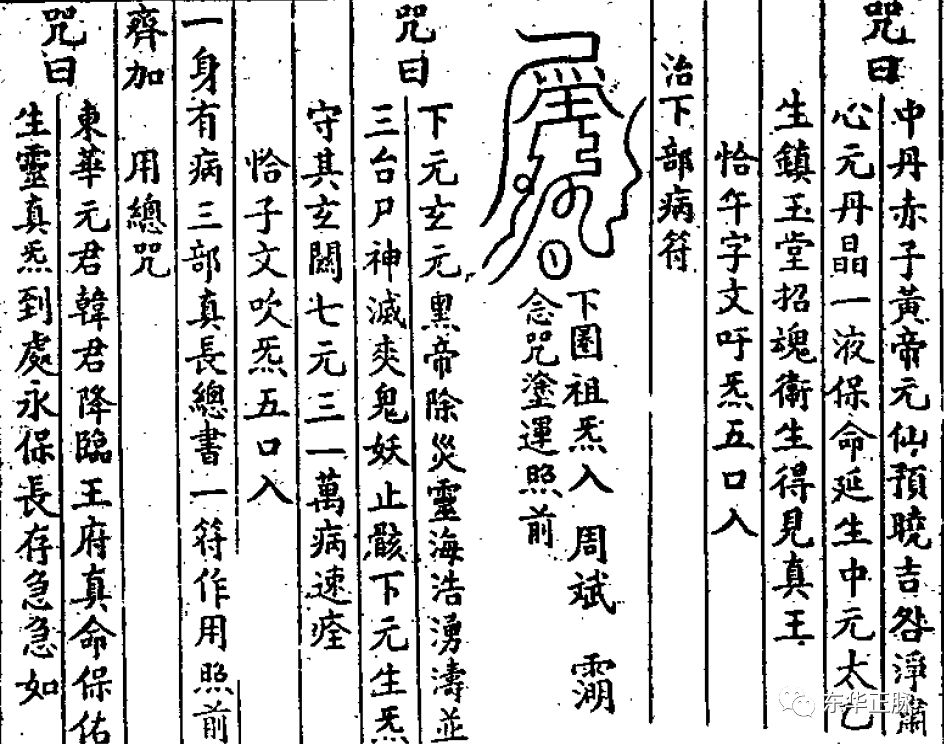 咒曰
中丹赤子黃帝元仙預曉吉咎淨肅
心元丹晶一液保命延生中元太乙
生鎮玉堂招魂衛生得見真王
恰午字文吁炁五口入
治下部病符
下圈祖炁入 周斌 灁
念咒塗運照前
咒曰
下元玄元黑帝除災靈海浩湧濤並
三台尸神滅爽鬼妖止骸下元生炁
守其玄關七元三一萬病速痊
恰子文吹炁五口入
一身有病三部真長總書一符作用照前
齊加 用總咒
咒曰
東華元君韓君降臨王府真命保佑
生靈真炁到處永保長存急急如
东华正脉